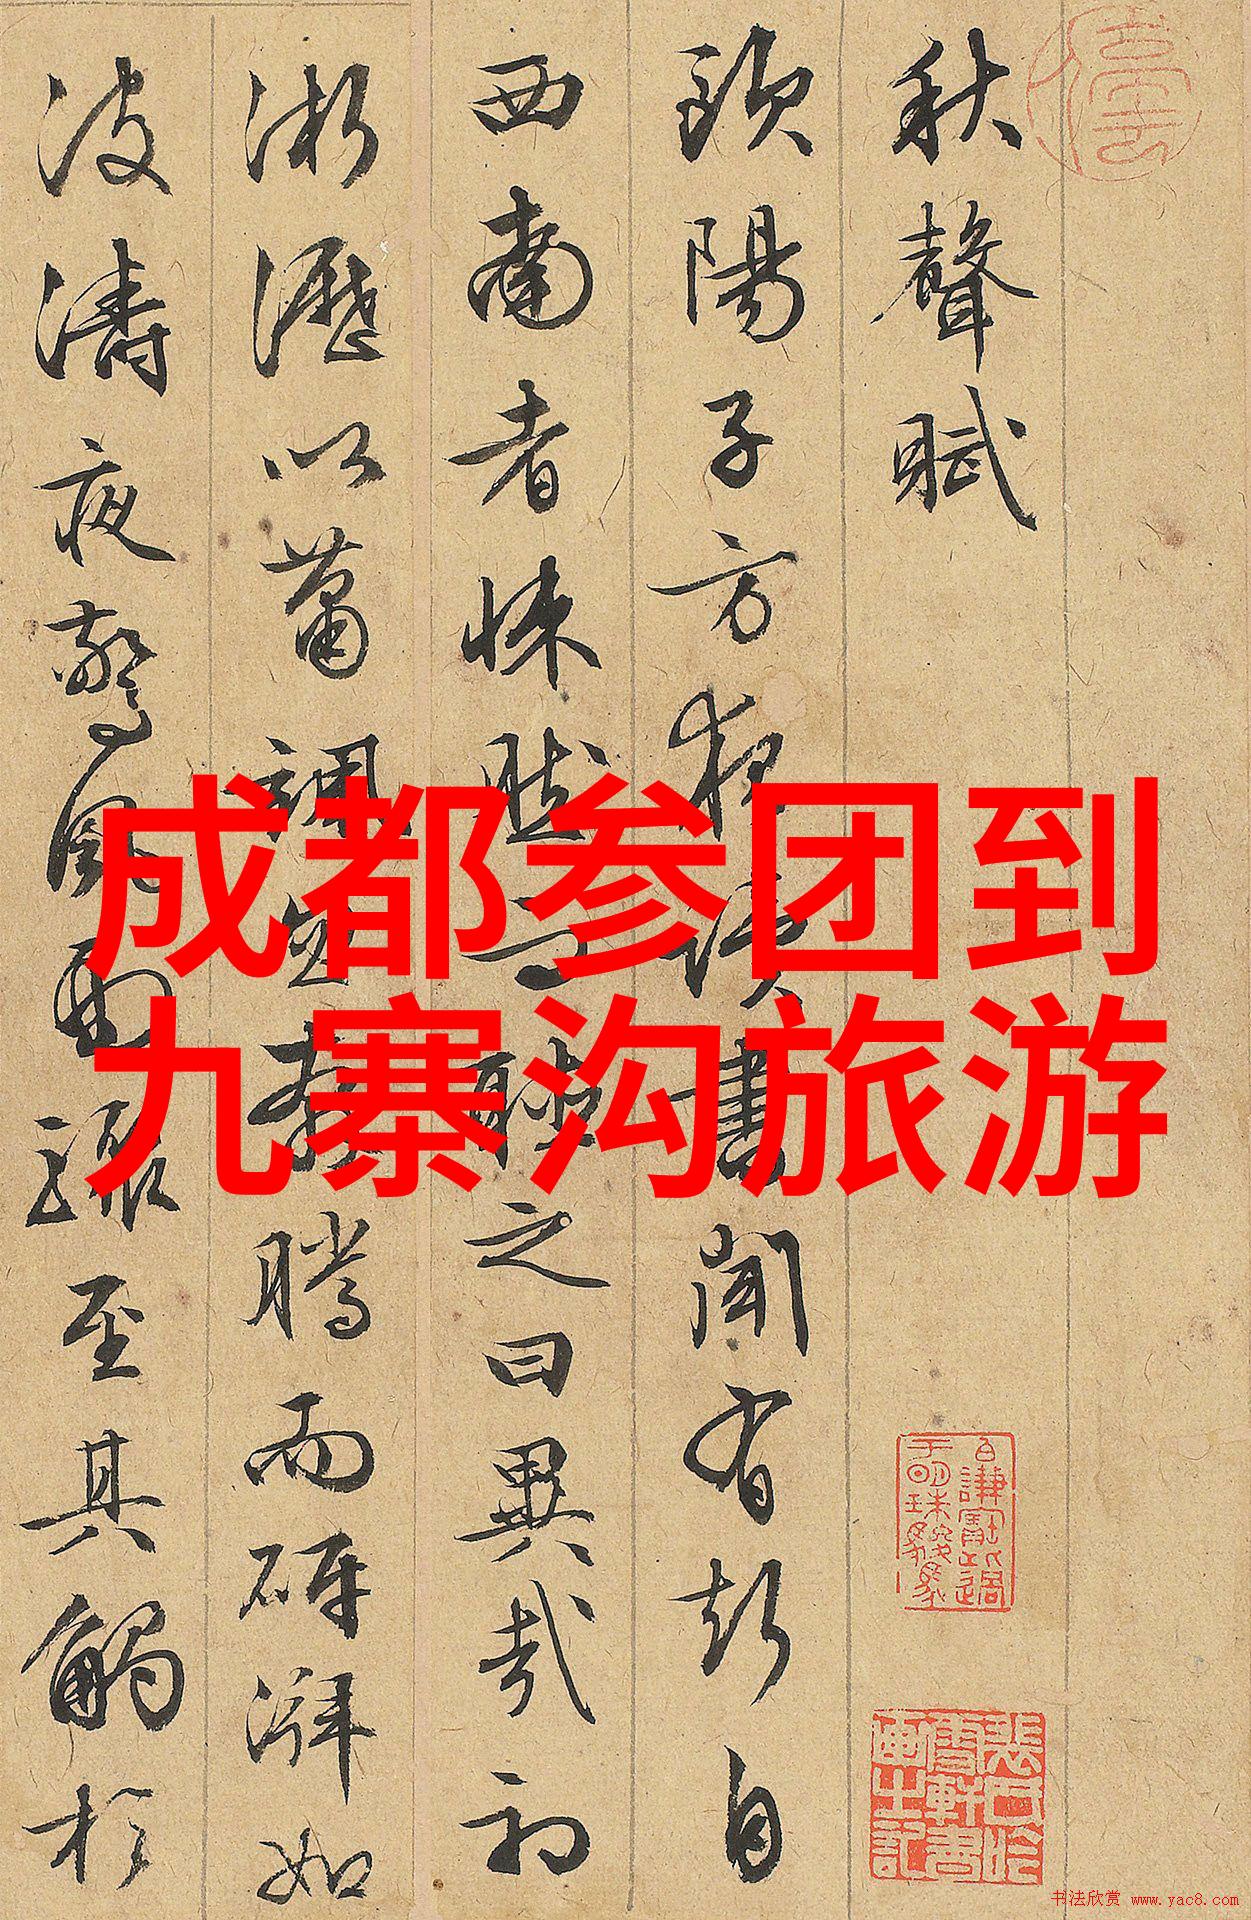 秋聲賦
歐陽子方夜讀書聞有聲自
西南者悚然而聽之曰異哉初
淅瀝以蕭颯忽奔騰而砰湃如
波濤夜驚風雨驟至其觸於
成都参团到
九寨沟旅游
书法欣赏 www.yac8.com